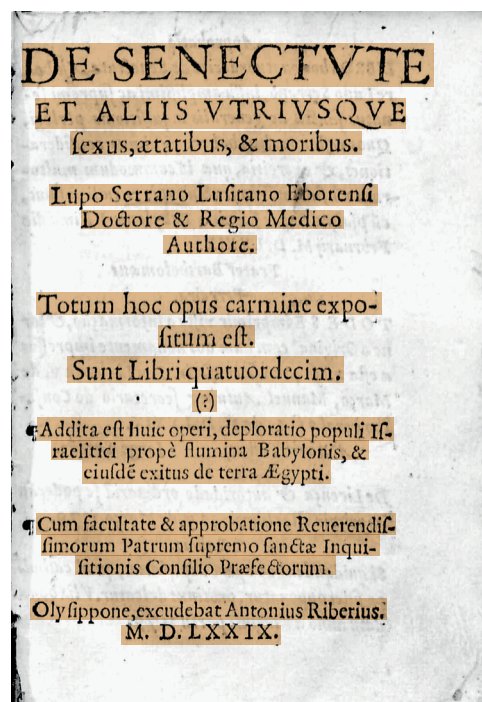 DE SENECTVTE
ET ALIIS VTRIVSQVE
ſexus, ætatibus, & moribus.
Lupo Serrano Luſitano Eborenſi
Doctore & Regio Medico
Authore.
Totum hoc opus carmine expo-
ſitum eſt.
Sunt Libri quatuordecim.
(?)
¶Addita eſt huic operi, deploratio populi Iſ-
raelitici propè flumina Babylonis, &
eiuſdē exitus de terra Ægypti.
¶Cum facultate & approbatione Reuerendiſ-
ſimorum Patrum ſupremo ſanctæ Inqui-
ſitionis Conſilio Præfectorum.
Olyſippone, excudebat Antonius Riberius.
M. D. LXXIX.